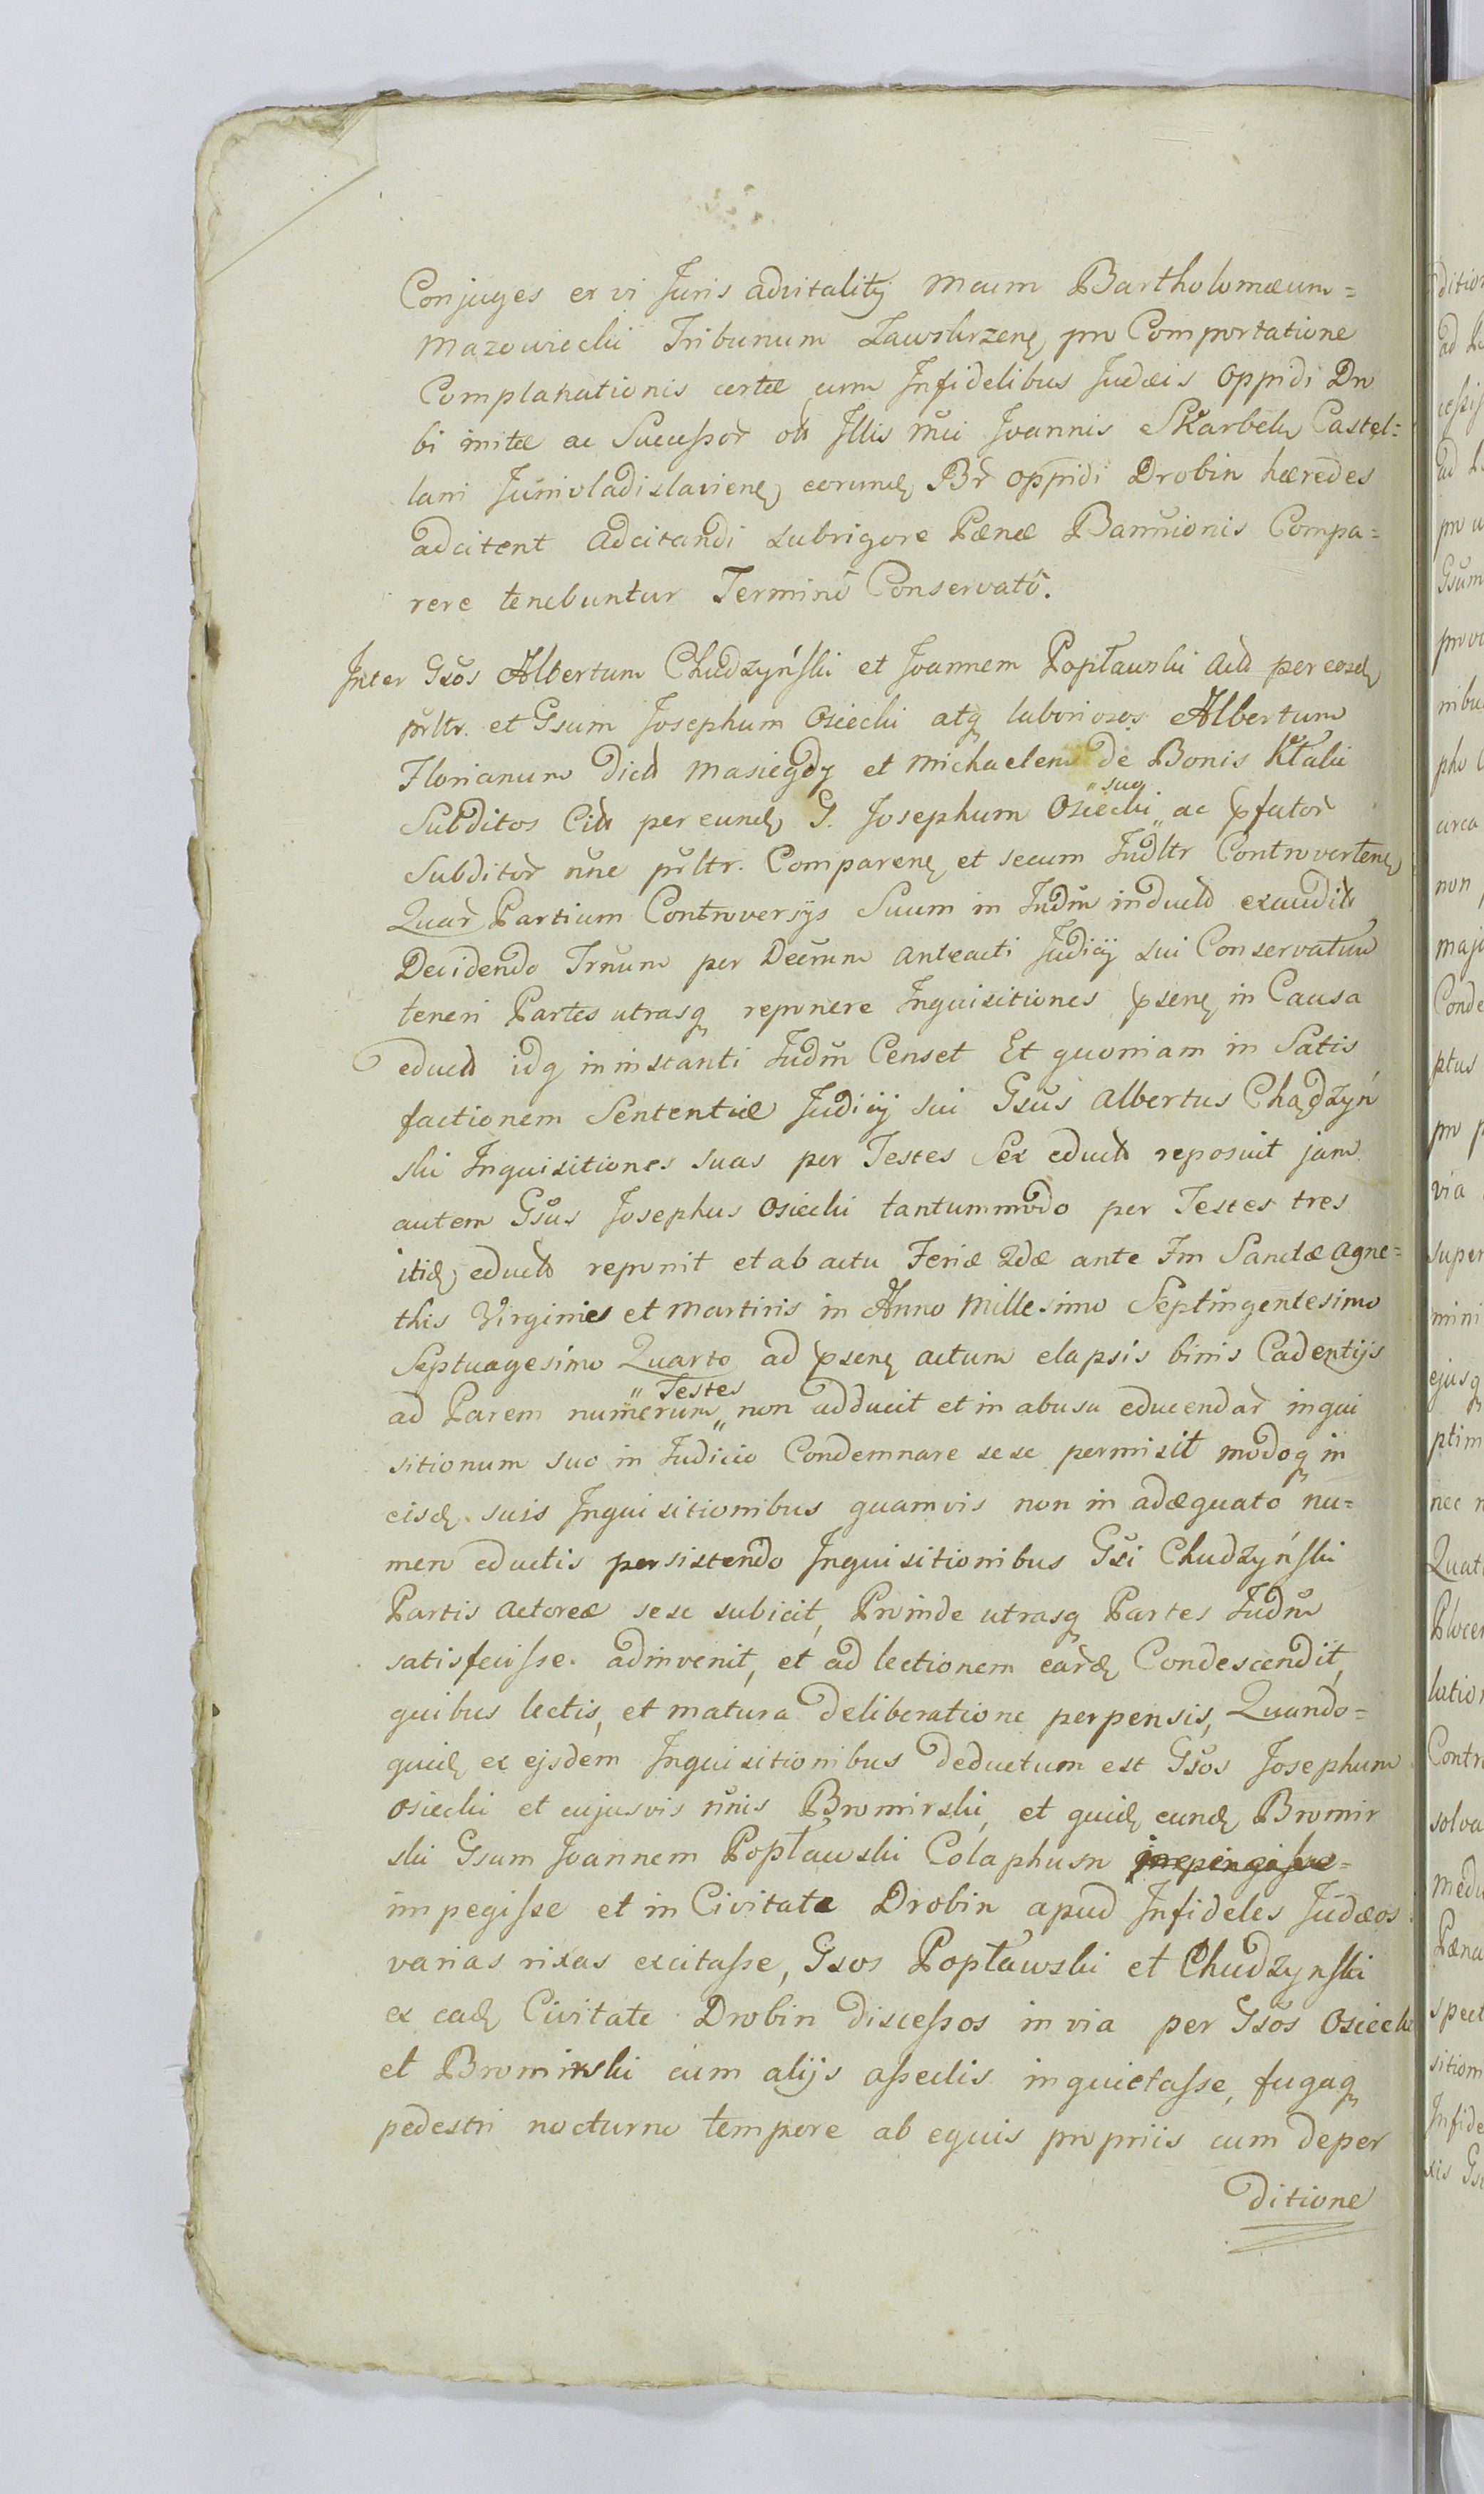 Conjuges ex vi Juris advitalitij Mcum Bartholomæum=
Mazowiecki Tribunum Zawskrzenę pro Comportatione
Complanationis certæ cum Infidelibus Judæis Oppidi Dro
bi initæ ac Successor Illis Mci Joannis Skarbek Castel=
lani Junivladislavienę eorundę Br Oppidi Drobin hæredes
adcitent Adcitandi subrigore Pænæ Bannionis Compa=
rere tenebuntur Termino Conservato.
Inter Gsos Albertum Chudzyński et Joannem Popławski Act per eosdę
prltr. et Gsum Josephum Osiecki atq laboriosos Albertum
Florianum Dict Masiegdy et Michaelem de Bonis
Subditos Cit per eundę G. Josephum Osiecki „suo„ ac pfator
Subditor nne prltr. Comparenę et secum Judltr Controvertenę
Quar Partium Controversijs Suum in Judm induct exaudit
Decidendo Trnum per Decrum Anteacti Judicij sui Conservatum
teneri Partes utrasq reponere Inquisitiones psenę in Causa
educt idq in instanti Judm Censet Et quoniam in Satis
factionem Sententiæ Judicij sui Gsus Albertus Chądzyń
ski Inquisitiones suas per Testes Sex educt reposuit jam
autem Gsus Josephus Osiecki tantummodo per Testes tres
itidę educt reponit et ab actu Feriæ 2dæ ante Fm Sanctæ Agne=
this Virginies et Martiris in Anno Millesimo Septingentesimo
Septuagesimo Quarto ad psenę actum elapsis binis Cadentijs
ad Parem numerum „Testes„ non adducit et in abusu educendar inqui
sitionum suo in Judicio Condemnare sese permisit modoq in
eisdę suis Inquisitionibus quamvis non in adæquato nu=
mero eductis persistendo Inquisitionibus Gsi Chudzyński
Partis Actoreæ sese subicit, Proinde utrasq Partes Judm
satisfecisse adinvenit, et ad lectionem eardę Condescendit,
quibus lectis, et matura deliberatione perpensis, Quando=
quidę ex ejsdem Inquisitionibus deductum est Gsos Josephum
Osiecki et cujusvis nnis Bromirski, et quidę eundę Bromir
ski Gsum Joannem Popławski Colaphum
impegisse et in Civitate Drobin apud Infideles Judæos
varias rixas excitasse, Gsos Popławski et Chudzynski
ex eadę Civitate Drobin discessos in via per Gsos Osiecki
et Bromirski cum alijs asseclis inquietasse, fugaq
pedestri nocturno tempore ab equis proprijs cum deper
ditione